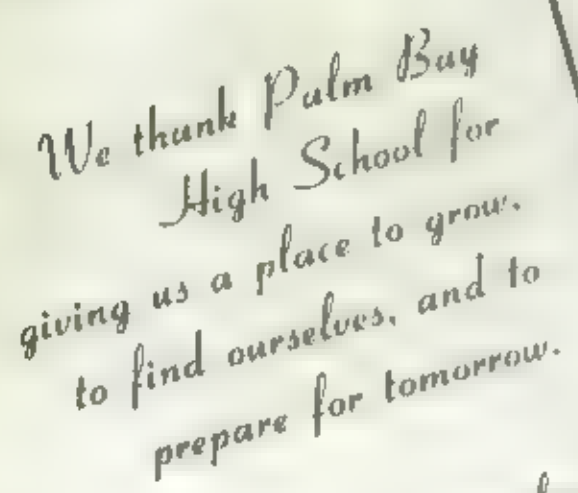 We thank Palm Bay
High School for
giving us a place to grow,
to find ourselves, and to
prepare for tomorrow.